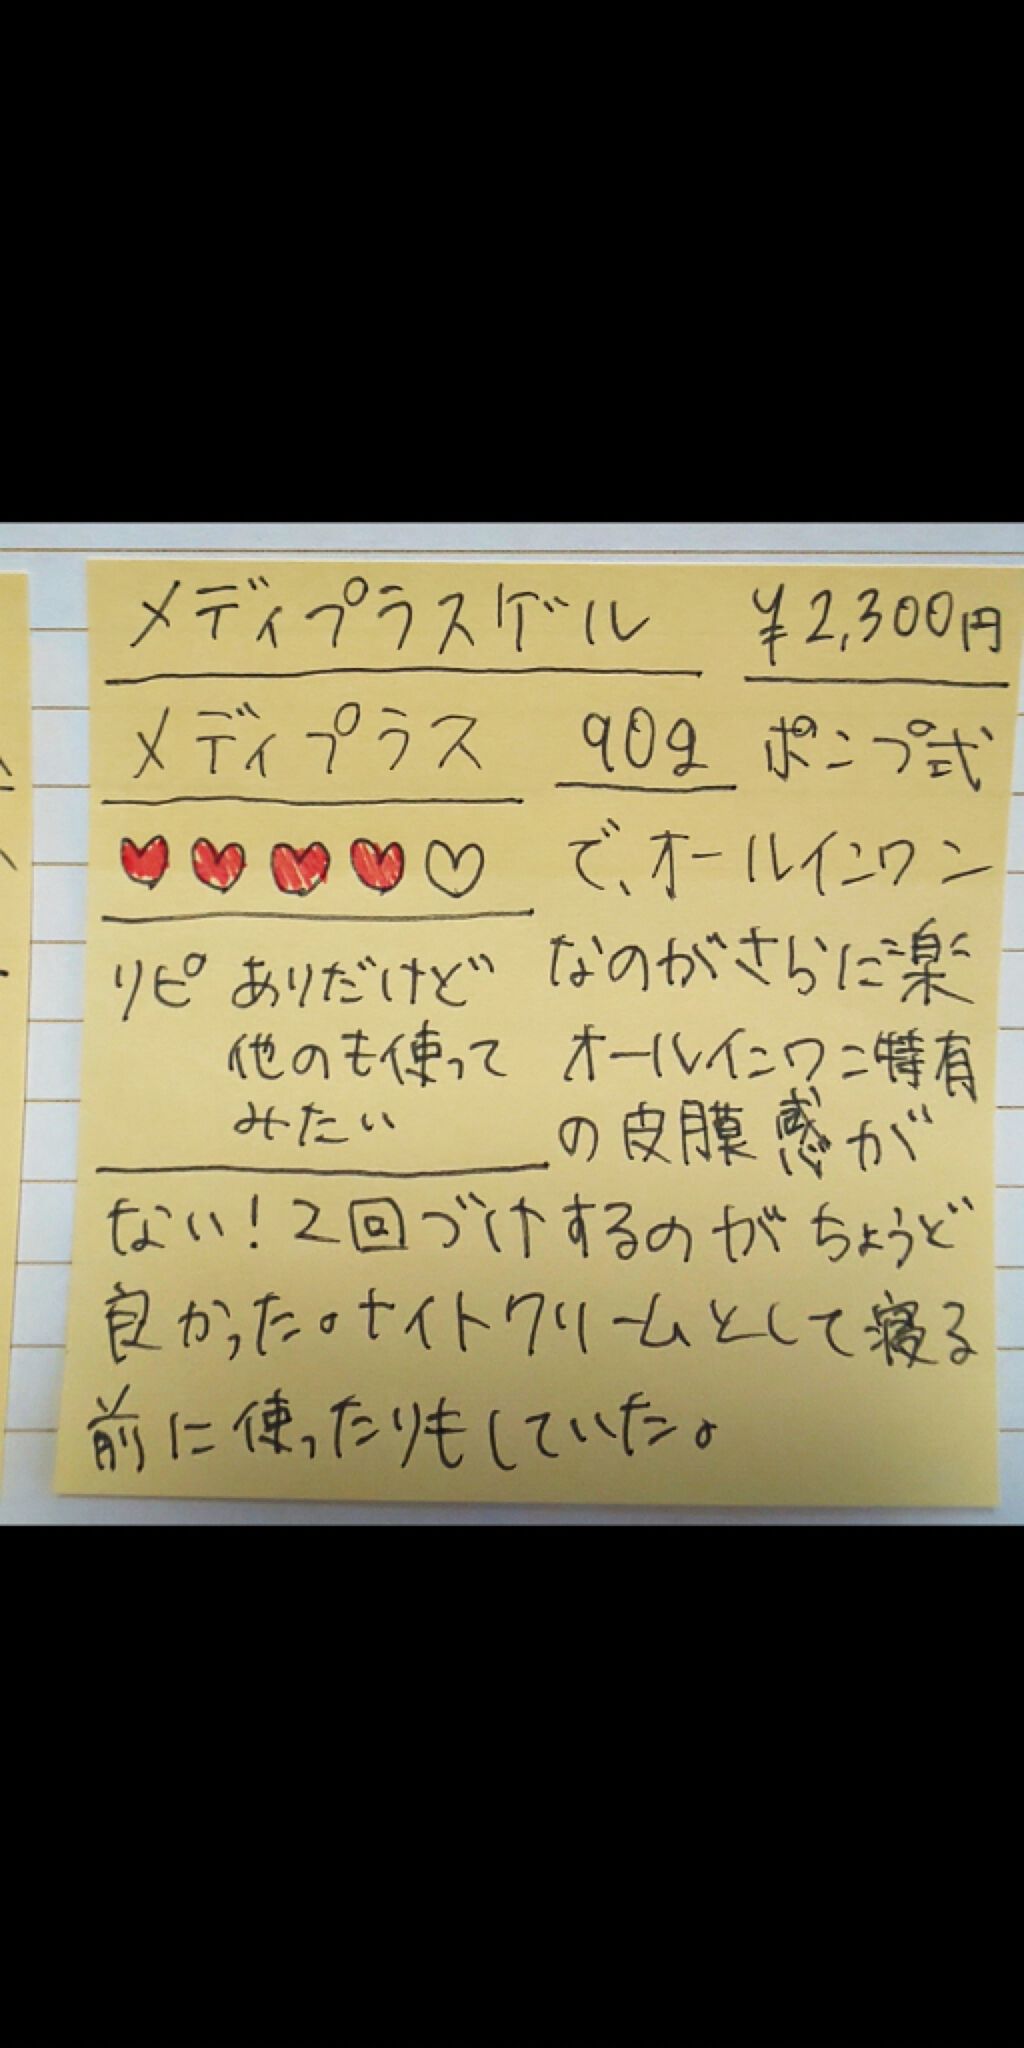 メディプラスゲル ¥2,300円
メディプラス 90g
♥♥♥♥♡
リピ ありだけど
他のも使って
みたい
ポンプ式
で、オールインワン
なのがさらに楽
オールインワン特有
の皮膜感が
ない！2回づけするのがちょうど
良かった。ナイトクリームとして寝る
前に使ったりもしていた。